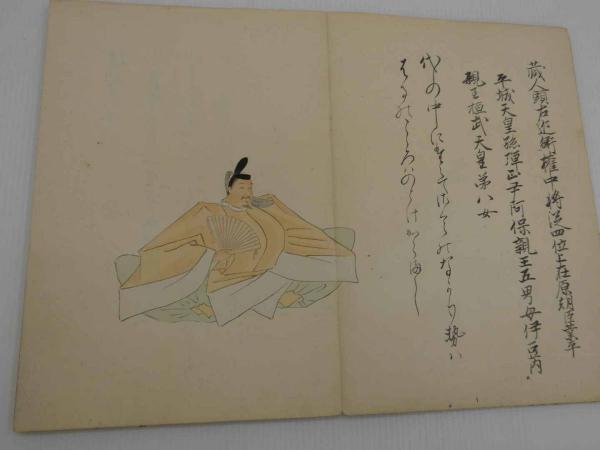 蔵人頭右近衛権中将従四位上在原朝臣業平
平城天皇孫弾正尹阿保親王五男母伊豆内
親王桓武天皇第八女
代の中にたえてさくらのなかりせハ
はるのこゝろはのとけからまし